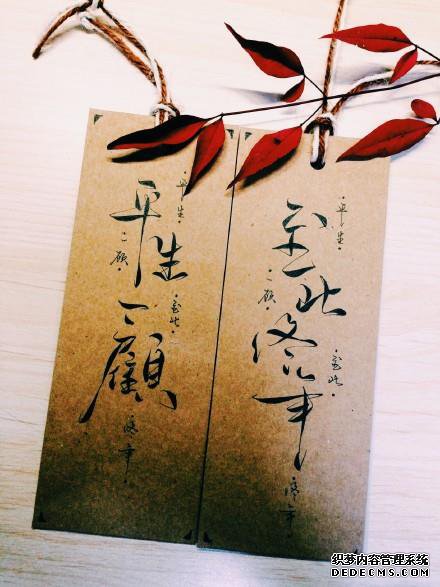 平生一顧
平生
一顾
至此
终年
至此终年
平生
一顾
至此
终年
织梦内容管理系统
DEDECMS.COM